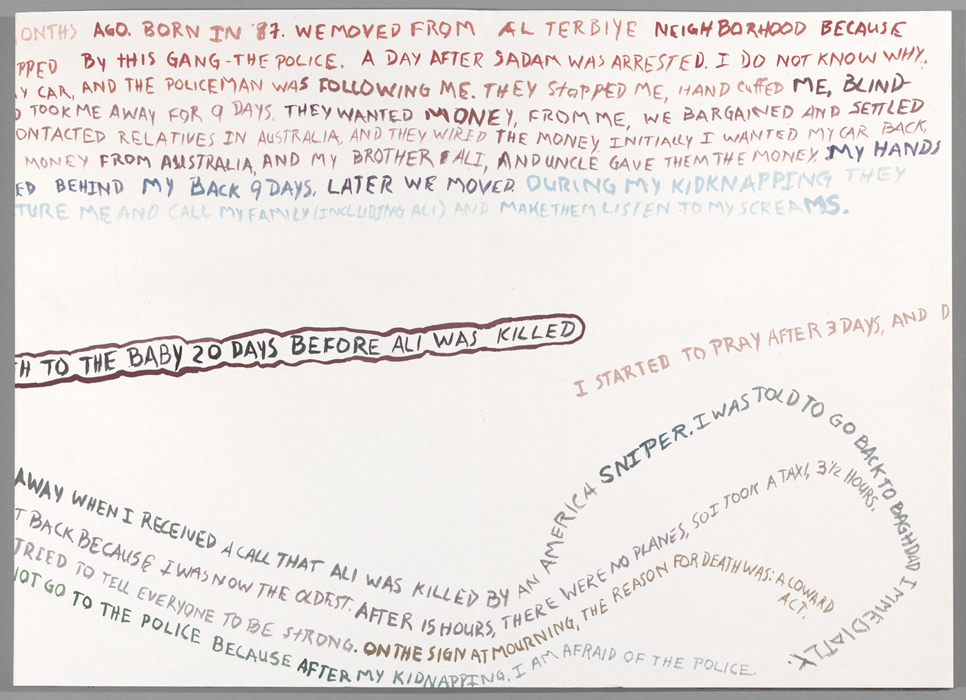 ONTHS AGO. BORN IN '87. WE MOVED FROM AL TERBIYE NEIGHBORHOOD BECAUSE
PPED BY THIS GANG-THE POLICE. A DAY AFTER SADAM WAS ARRESTED. I DO NOT KNOW WHY.
Y CAR, AND THE POLICEMAN WAS FOLLOWING ME. THEY STOPPED ME, HAND CUFFED ME, BLIND-
D TOOK ME AWAY FOR 9 DAYS. THEY WANTED MONEY, FROM ME, WE BARGAINED AND SETTLED
ONTACTED RELATIVES IN AUSTRALIA, AND THEY WIRED THE MONEY. INITIALLY I WANTED MY CAR BACK,
MONEY FROM AUSTRALIA, AND MY BROTHER ALI, AND UNCLE GAVE THEM THE MONEY. MY HANDS
ED BEHIND MY BACK 9 DAYS. LATER WE MOVED. DURING MY KIDKNAPPING THEY
TURE ME AND CALL MY FAMILY (INCLUDING ALI) AND MAKE THEM LISTEN TO MY SCREAMS.
TH TO THE BABY 20 DAYS BEFORE ALI WAS KILLED
I STARTED TO PRAY AFTER 3 DAYS, AND D
AWAY WHEN I RECEIVED A CALL THAT ALI WAS KILLED BY AN AMERICA SNIPER. I WAS TOLD TO GO BACK TO BAGHDAD IMMEDIATLY.
T BACK BECAUSE I WAS NOW THE OLDEST. AFTER 15 HOURS, THERE WERE NO PLANES, SO I TOOK A TAXI, 3½ HOURS.
TRIED TO TELL EVERYONE TO BE STRONG. ON THE SIGN AT MOURNING, THE REASON FOR DEATH WAS: A COWARD
ACT.
NOT GO TO THE POLICE BECAUSE AFTER MY KIDNAPPING. I AM AFRAID OF THE POLICE.